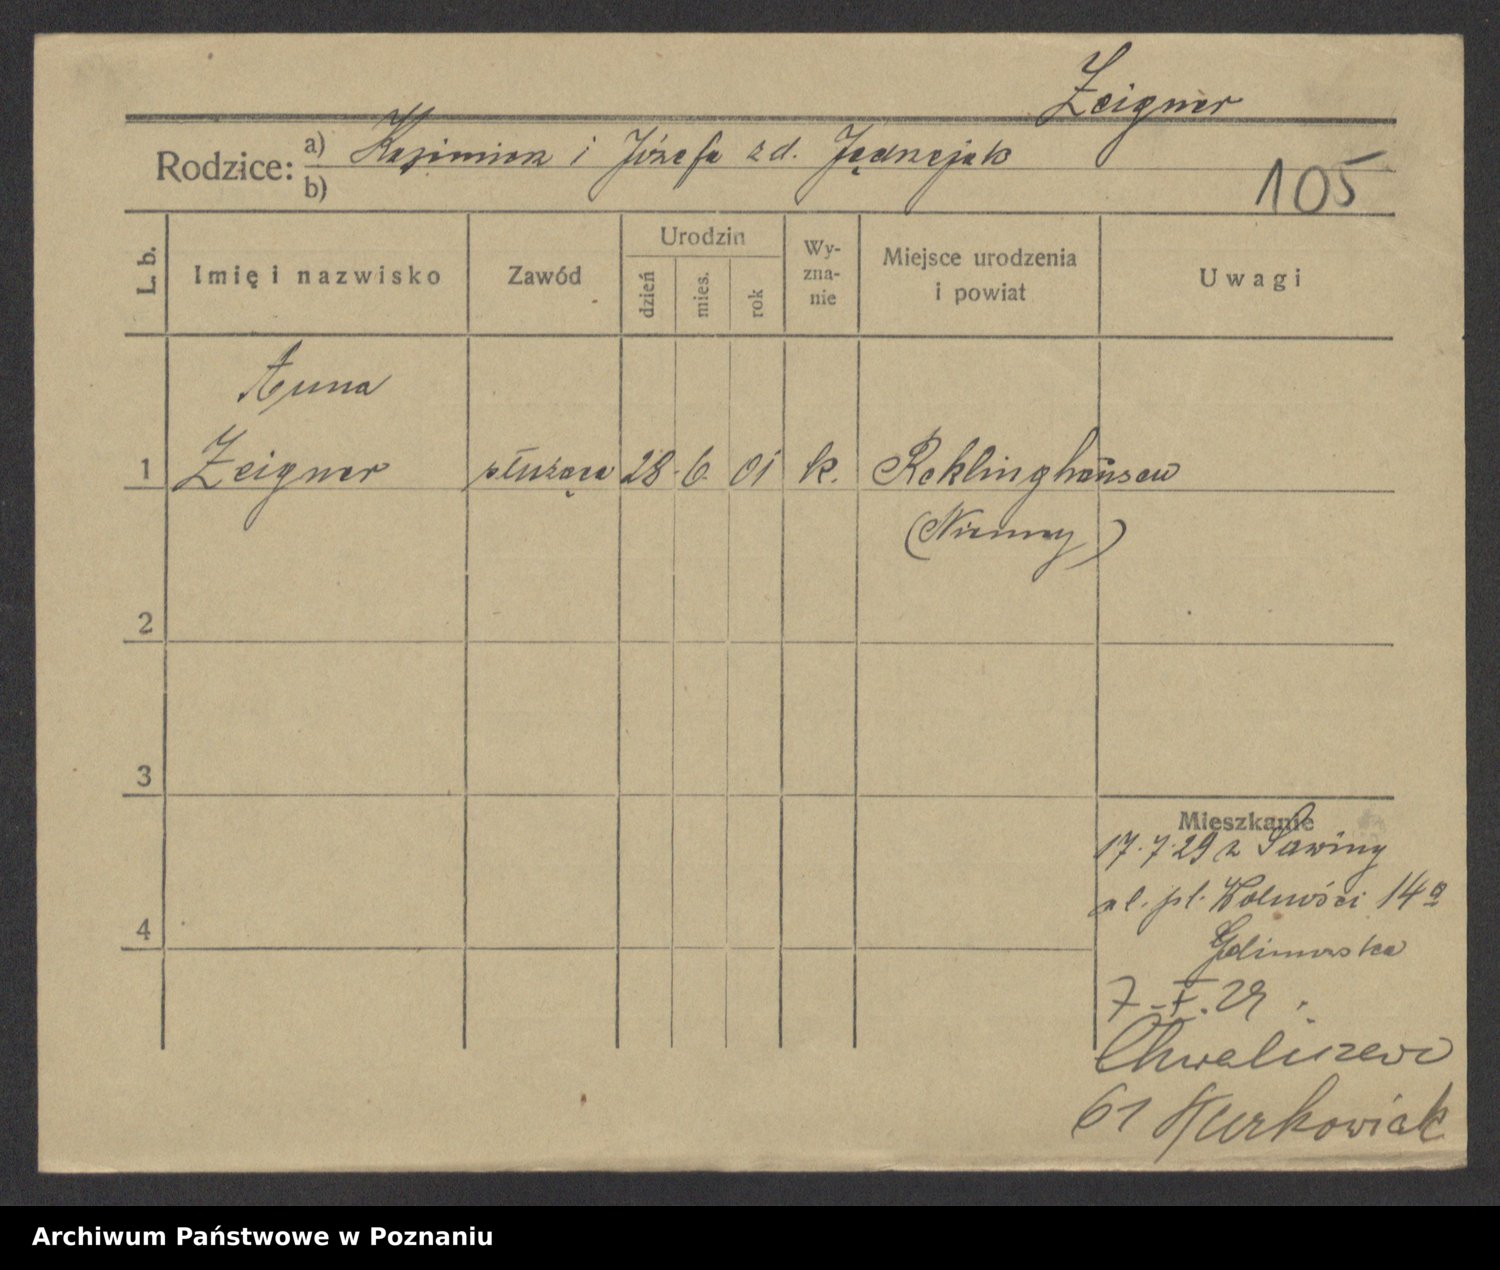 Zeigner
Rodzice: a) Kazimierz i Józefa z d. Jędrzejak
b)
105
L. b. Imię i nazwisko Zawód Urodzin dzień mies. rok Wy-zna-nie Miejsce urodzenia i powiat Uwagi
Anna
1 Zeigner służąca 28. 6. 01 k. Reklinghausen
(Niemcy)
2
3
Mieszkanie
17.7.29 z Sawiny
pl. Wolności 14a
4
7-X.29
Chwaliszewo
61 Kurkowiak
Archiwum Państwowe w Poznaniu